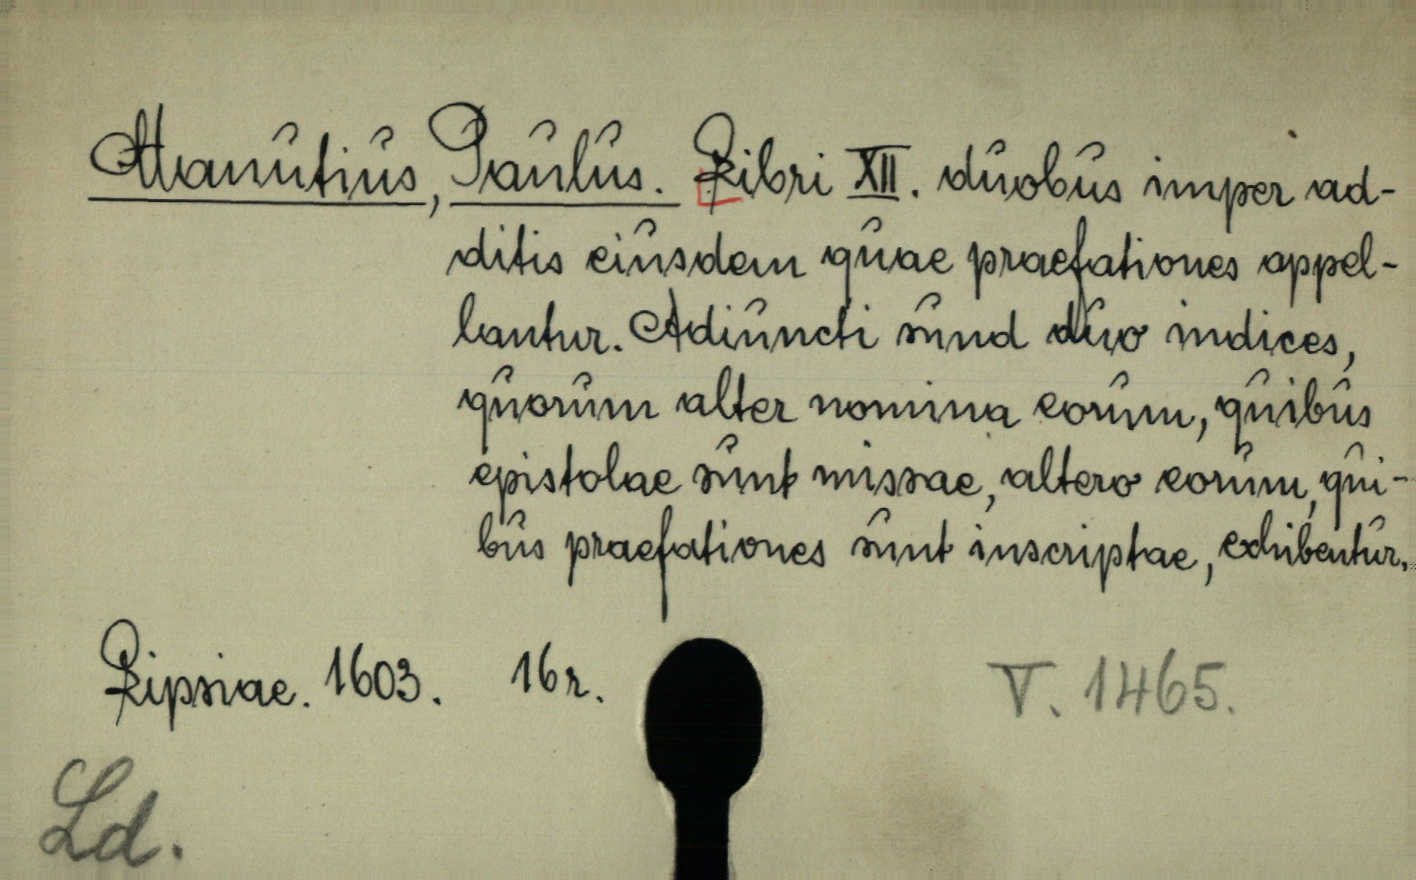 Manutius, Paulus. Libri XII. duobus imper ad-
ditis eiusdem quae praefationes appel-
lantur. Adiuncti sund duo indices,
quorum alter nomina eorum, quibus
epistolae sunt missae, altero eorum, qui-
bus praefationes sunt inscriptae, exhibentur.
Lipsiae. 1603. 16r.
V. 1465.
Ld.